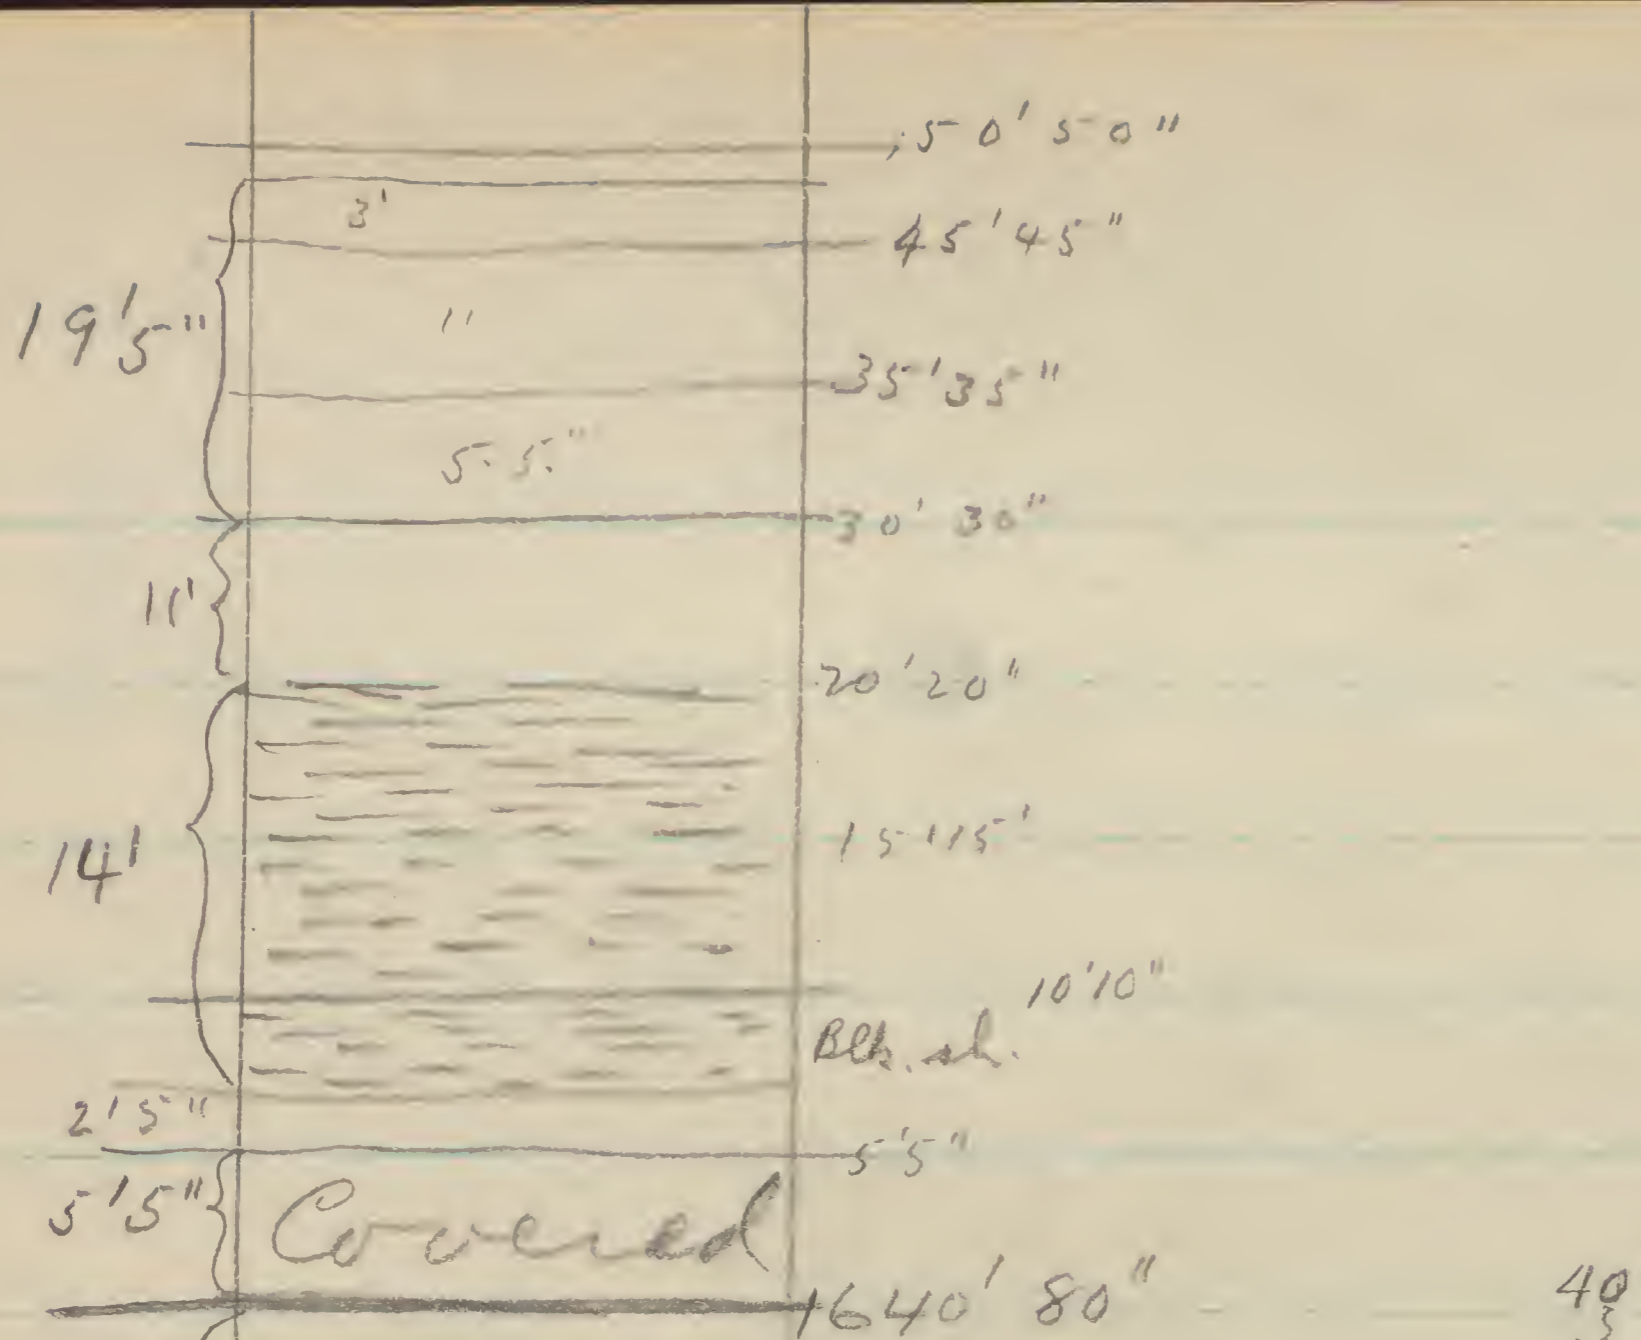 50' 50"
3'
45' 45"
19'5"
11
35' 35"
5.5."
30' 30"
11'
20' 20"
15'15'
14'
10'10"
Blk. sh.
2'5"
5'5"
5'5"
Covered
1640' 80"
40
3